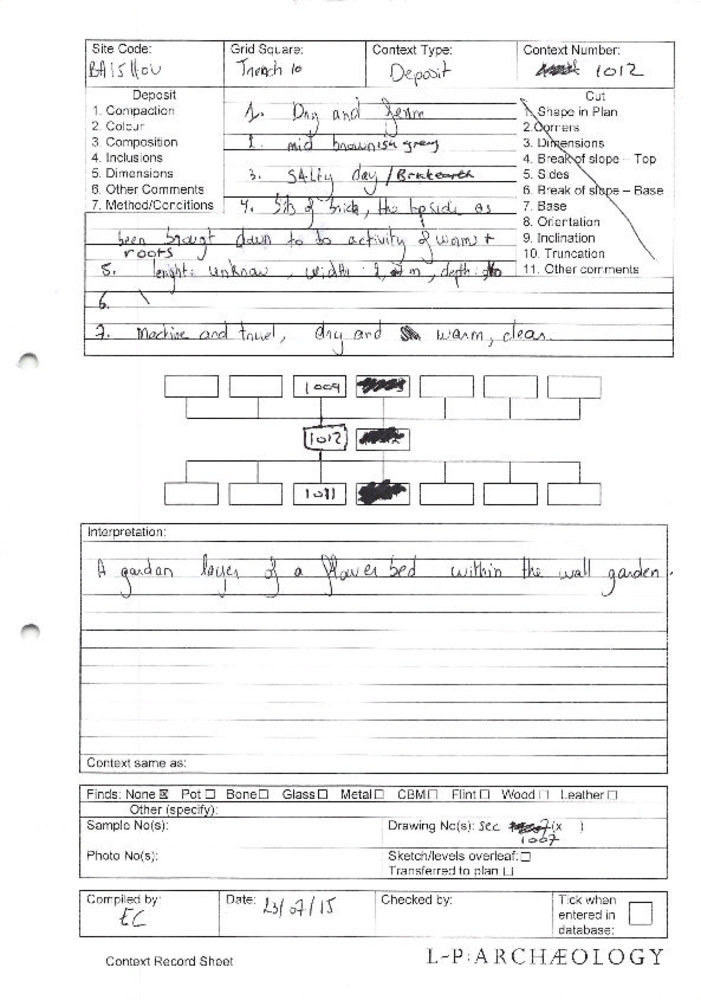 Site Code:
Grid Square:
Context Type:
Context Number:
Trench 10
Deposit
1012
Deposit
Cut
1. Compaction
1. Dry and
1. Shape in Plan
2. Colour
2. Corners
3. Composition
mid brownish grey
3. Dimensions
4. Inclusions
4. Break of slope – Top
5. Dimensions
3. Silty clay /
5. Sides
6. Other Comments
6. Break of slope – Base
7. Method/Conditions
4. bits of brick, the topside as
7. Base
8. Orientation
been brougt down to to activity of worm +
9. Inclination
roots
10. Truncation
5. lenght: unknow, width: m, depth:
11. Other comments
6. \
7. Machine and trowel, dry and warm, clear.
1009
1012
1011
Interpretation:
A gardan layer of a flower bed within the wall garden.
Context same as:
Finds: None ☒ Pot ☐ Bone ☐ Glass ☐ Metal ☐ CBM ☐ Flint ☐ Wood ☐ Leather ☐
Other (specify):
Sample No(s):
Drawing No(s): Sec (x )
1007
Photo No(s):
Sketch/levels overleaf: ☐
Transferred to plan ☐
Compiled by:
EC
Date: 23/07/15
Checked by:
Tick when
entered in
database:
Context Record Sheet
L-P:ARCHÆOLOGY